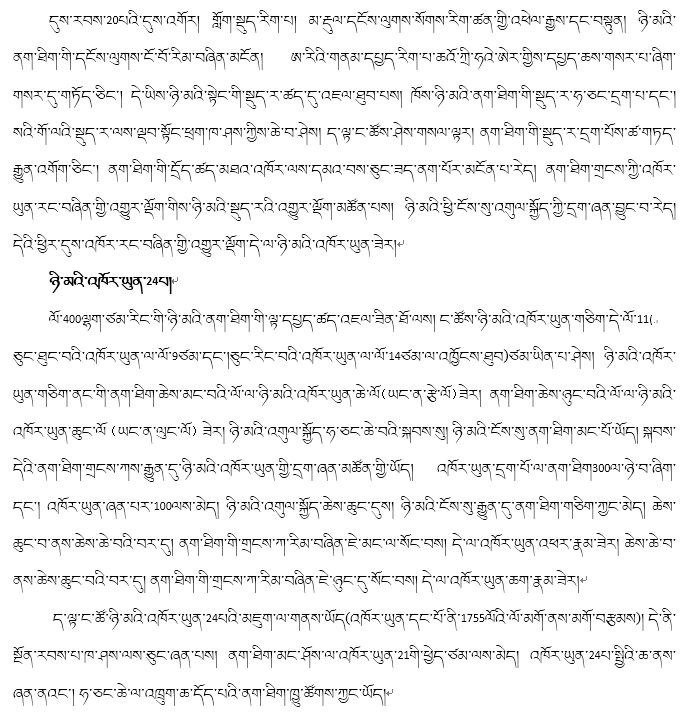 དུས་རབས་20པའི་དུས་འགོར། གློག་སྡུད་རིག་པ། མ་རྡུལ་དངོས་ལུགས་སོགས་རིག་ཚན་གྱི་འཕེལ་རྒྱས་དང་བསྟུན། ཉི་མའི་
ནག་ཐིག་གི་དངོས་ལུགས་ངོ་བོ་རིམ་བཞིན་མངོན། ཨ་རིའི་གནམ་དཔྱད་རིག་པ་ཆའོ་ཀྲི་ཧའེ་ཨེར་གྱིས་དཔྱད་ཆས་གསར་པ་ཞིག་
གསར་དུ་གཏོད་ཅིང་། དེ་ཡིས་ཉི་མའི་སྟེང་གི་སྡུད་ར་ཚད་དུ་འཇལ་ཐུབ་པས། ཁོས་ཉི་མའི་ནག་ཐིག་གི་སྡུད་ར་ཧ་ཅང་དྲག་པ་དང་།
སའི་གོ་ལའི་སྡུད་ར་ལས་ལྡབ་སྟོང་ཕྲག་ཁ་ཤས་ཀྱིས་ཆེ་བ་ཤེས། ད་ལྟ་ང་ཚོས་ཤེས་གསལ་ལྟར། ནག་ཐིག་གི་སྡུད་ར་དྲག་པོས་ཚ་གཏད་
རྒྱུན་འགོག་ཅིང་། ནག་ཐིག་གི་དྲོད་ཚད་མཐའ་འཁོར་ལས་དམའ་བས་ཅུང་ཟད་ནག་པོར་མངོན་པ་རེད། ནག་ཐིག་གྲངས་ཀྱི་འཁོར་
ཡུན་རང་བཞིན་གྱི་འགྱུར་ལྡོག་གིས་ཉི་མའི་སྡུད་རའི་འགྱུར་ལྡོག་མཚོན་པས། ཉི་མའི་ཕྱི་ངོས་སུ་འགུལ་སྐྱོད་ཀྱི་དྲག་ཞན་བྱུང་བ་རེད།
དེའི་ཕྱིར་དུས་འཁོར་རང་བཞིན་གྱི་འགྱུར་ལྡོག་དེ་ལ་ཉི་མའི་འཁོར་ཡུན་ཟེར།
ཉི་མའི་འཁོར་ཡུན་24པ།
ལོ་400ལྷག་ཙམ་རིང་གི་ཉི་མའི་ནག་ཐིག་གི་ལྟ་དཔྱད་ཚད་འཇལ་ཟིན་ཐོ་ལས། ང་ཚོས་ཉི་མའི་འཁོར་ཡུན་གཅིག་དེ་ལོ་11(
ཅུང་ཐུང་བའི་འཁོར་ཡུན་ལ་ལོ་9ཙམ་དང་།ཅུང་རིང་བའི་འཁོར་ཡུན་ལ་ལོ་14ཙམ་ལ་འཁྱོངས་ཐུབ)ཙམ་ཡིན་པ་ཤེས། ཉི་མའི་འཁོར་
ཡུན་གཅིག་ནང་གི་ནག་ཐིག་ཆེས་མང་བའི་ལོ་ལ་ཉི་མའི་འཁོར་ཡུན་ཆེ་ལོ(ཡང་ན་རྩེ་ལོ)ཟེར། ནག་ཐིག་ཆེས་ཉུང་བའི་ལོ་ལ་ཉི་མའི་
འཁོར་ཡུན་ཆུང་ལོ (ཡང་ན་ལུང་ལོ) ཟེར། ཉི་མའི་འགུལ་སྐྱོད་ཧ་ཅང་ཆེ་བའི་སྐབས་སུ། ཉི་མའི་ངོས་སུ་ནག་ཐིག་མང་པོ་ཡོད། སྐབས་
དེའི་ནག་ཐིག་གྲངས་ཀས་རྒྱུན་དུ་ཉི་མའི་འཁོར་ཡུན་གྱི་དྲག་ཞན་མཚོན་གྱི་ཡོད། འཁོར་ཡུན་དྲག་པོ་ལ་ནག་ཐིག300ལ་ཉེ་བ་ཞིག་
དང་། འཁོར་ཡུན་ཞན་པར་100ལས་མེད། ཉི་མའི་འགུལ་སྐྱོད་ཆེས་ཆུང་དུས། ཉི་མའི་ངོས་སུ་རྒྱུན་དུ་ནག་ཐིག་གཅིག་ཀྱང་མེད། ཆེས་
ཆུང་བ་ནས་ཆེས་ཆེ་བའི་བར་དུ། ནག་ཐིག་གི་གྲངས་ཀ་རིམ་བཞིན་ཇེ་མང་ལ་སོང་བས། དེ་ལ་འཁོར་ཡུན་འཕར་རྣམ་ཟེར། ཆེས་ཆེ་བ་
ནས་ཆེས་ཆུང་བའི་བར་དུ། ནག་ཐིག་གི་གྲངས་ཀ་རིམ་བཞིན་ཇེ་ཉུང་དུ་སོང་བས། དེ་ལ་འཁོར་ཡུན་ཆག་རྣམ་ཟེར།
ད་ལྟ་ང་ཚོ་ཉི་མའི་འཁོར་ཡུན་24པའི་མཇུག་ལ་གནས་ཡོད(འཁོར་ཡུན་དང་པོ་ནི་1755ལོའི་ལོ་མགོ་ནས་མགོ་བརྩམས)། དེ་ནི་
སྔོན་རབས་པ་ཁ་ཤས་ལས་ཅུང་ཞན་པས། ནག་ཐིག་མང་ཤོས་ལ་འཁོར་ཡུན་21གི་ཕྱེད་ཙམ་ལས་མེད། འཁོར་ཡུན་24པ་སྤྱིའི་ཆ་ནས་
ཞན་ནའང་། ཧ་ཅང་ཆེ་ལ་འཁྲུག་ཆ་དོད་པའི་ནག་ཐིག་ཁྱུ་ཚོགས་ཀྱང་ཡོད།